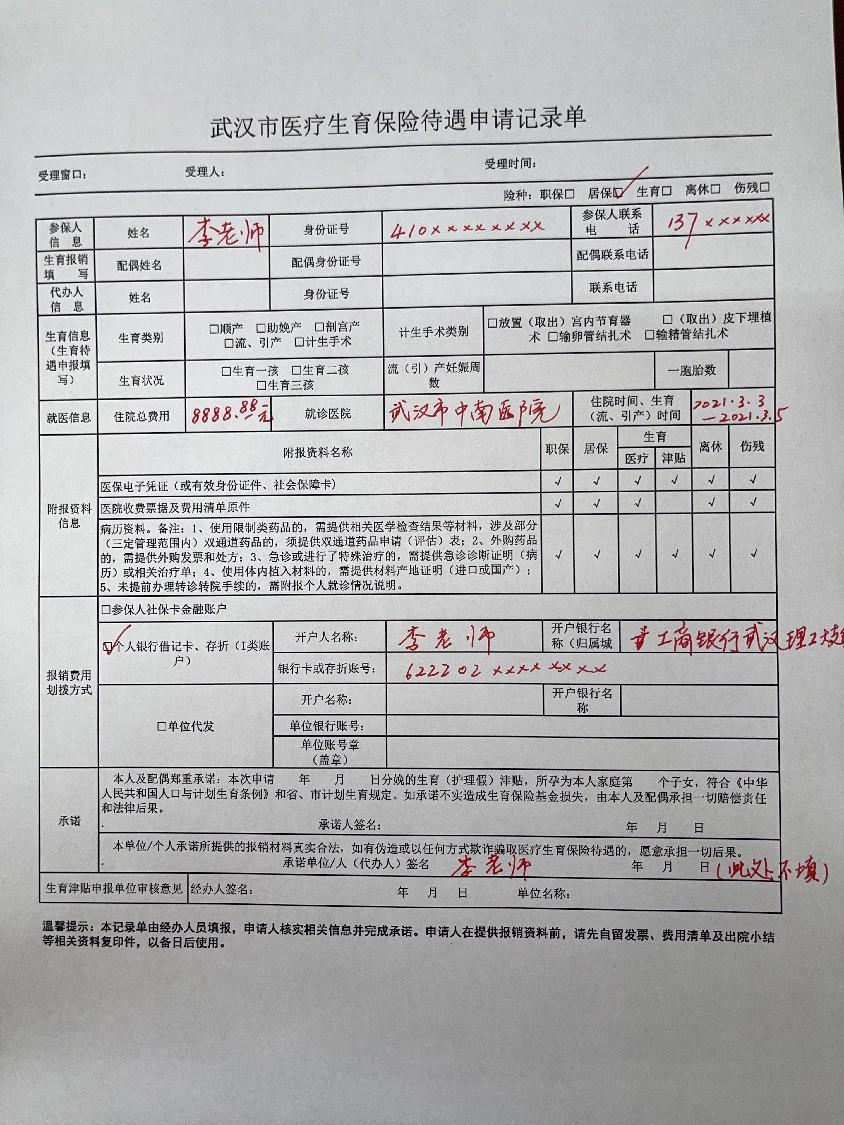 武汉市医疗生育保险待遇申请记录单
受理窗口： 受理人： 受理时间：
险种：职保□ 居保☑ 生育□ 离休□ 伤残□
参保人信息 姓名 李老师 身份证号 410xxxxxxxxx 参保人联系电话 137xxxxxx
生育报销填写 配偶姓名 配偶身份证号 配偶联系电话
代办人信息 姓名 身份证号 联系电话
生育信息（生育待遇申报填写） 生育类别 □顺产 □助娩产 □剖宫产
□流、引产 □计生手术
计生手术类别 □放置（取出）宫内节育器 □（取出）皮下埋植
术 □输卵管结扎术 □输精管结扎术
生育状况 □生育一孩 □生育二孩
□生育三孩
流（引）产妊娠周数 一胞胎数
就医信息 住院总费用 8888.88元 就诊医院 武汉市中南医院 住院时间、生育（流、引产）时间 2021.3.3
—2021.3.5
附报资料信息 附报资料名称 职保 居保 生育 离休 伤残
医疗 津贴
医保电子凭证（或有效身份证件、社会保障卡） √ √ √ √ √ √
医院收费票据及费用清单原件 √ √ √ √ √
病历资料。备注：1、使用限制类药品的，需提供相关医学检查结果等材料，涉及部分
（三定管理范围内）双通道药品的，须提供双通道药品申请（评估）表；2、外购药品
的，需提供外购发票和处方；3、急诊或进行了特殊治疗的，需提供急诊诊断证明（病
历）或相关治疗单；4、使用体内植入材料的，需提供材料产地证明（进口或国产）；
5、未提前办理转诊转院手续的，需附报个人就诊情况说明。 √ √ √ √ √ √
报销费用划拨方式 □参保人社保卡金融账户
☑个人银行借记卡、存折（I类账户） 开户人名称： 李老师 开户银行名称（归属城 工商银行武汉理工大支
银行卡或存折账号： 622202 xxxx xx xx
□单位代发 开户名称： 开户银行名称
单位银行账号：
单位账号章（盖章）
承诺 本人及配偶郑重承诺：本次申请 年 月 日分娩的生育（护理假）津贴，所孕为本人家庭第 个子女，符合《中华
人民共和国人口与计划生育条例》和省、市计划生育规定。如承诺不实造成生育保险基金损失，由本人及配偶承担一切赔偿责任
和法律后果。
承诺人签名： 年 月 日
本单位/个人承诺所提供的报销材料真实合法，如有伪造或以任何方式欺诈骗取医疗生育保险待遇的，愿意承担一切后果。
承诺单位/人（代办人）签名 李老师 年 月 日（此处不填）
生育津贴申报单位审核意见 经办人签名： 年 月 日 单位名称：
温馨提示：本记录单由经办人员填报，申请人核实相关信息并完成承诺。申请人在提供报销资料前，请先自留发票、费用清单及出院小结
等相关资料复印件，以备日后使用。